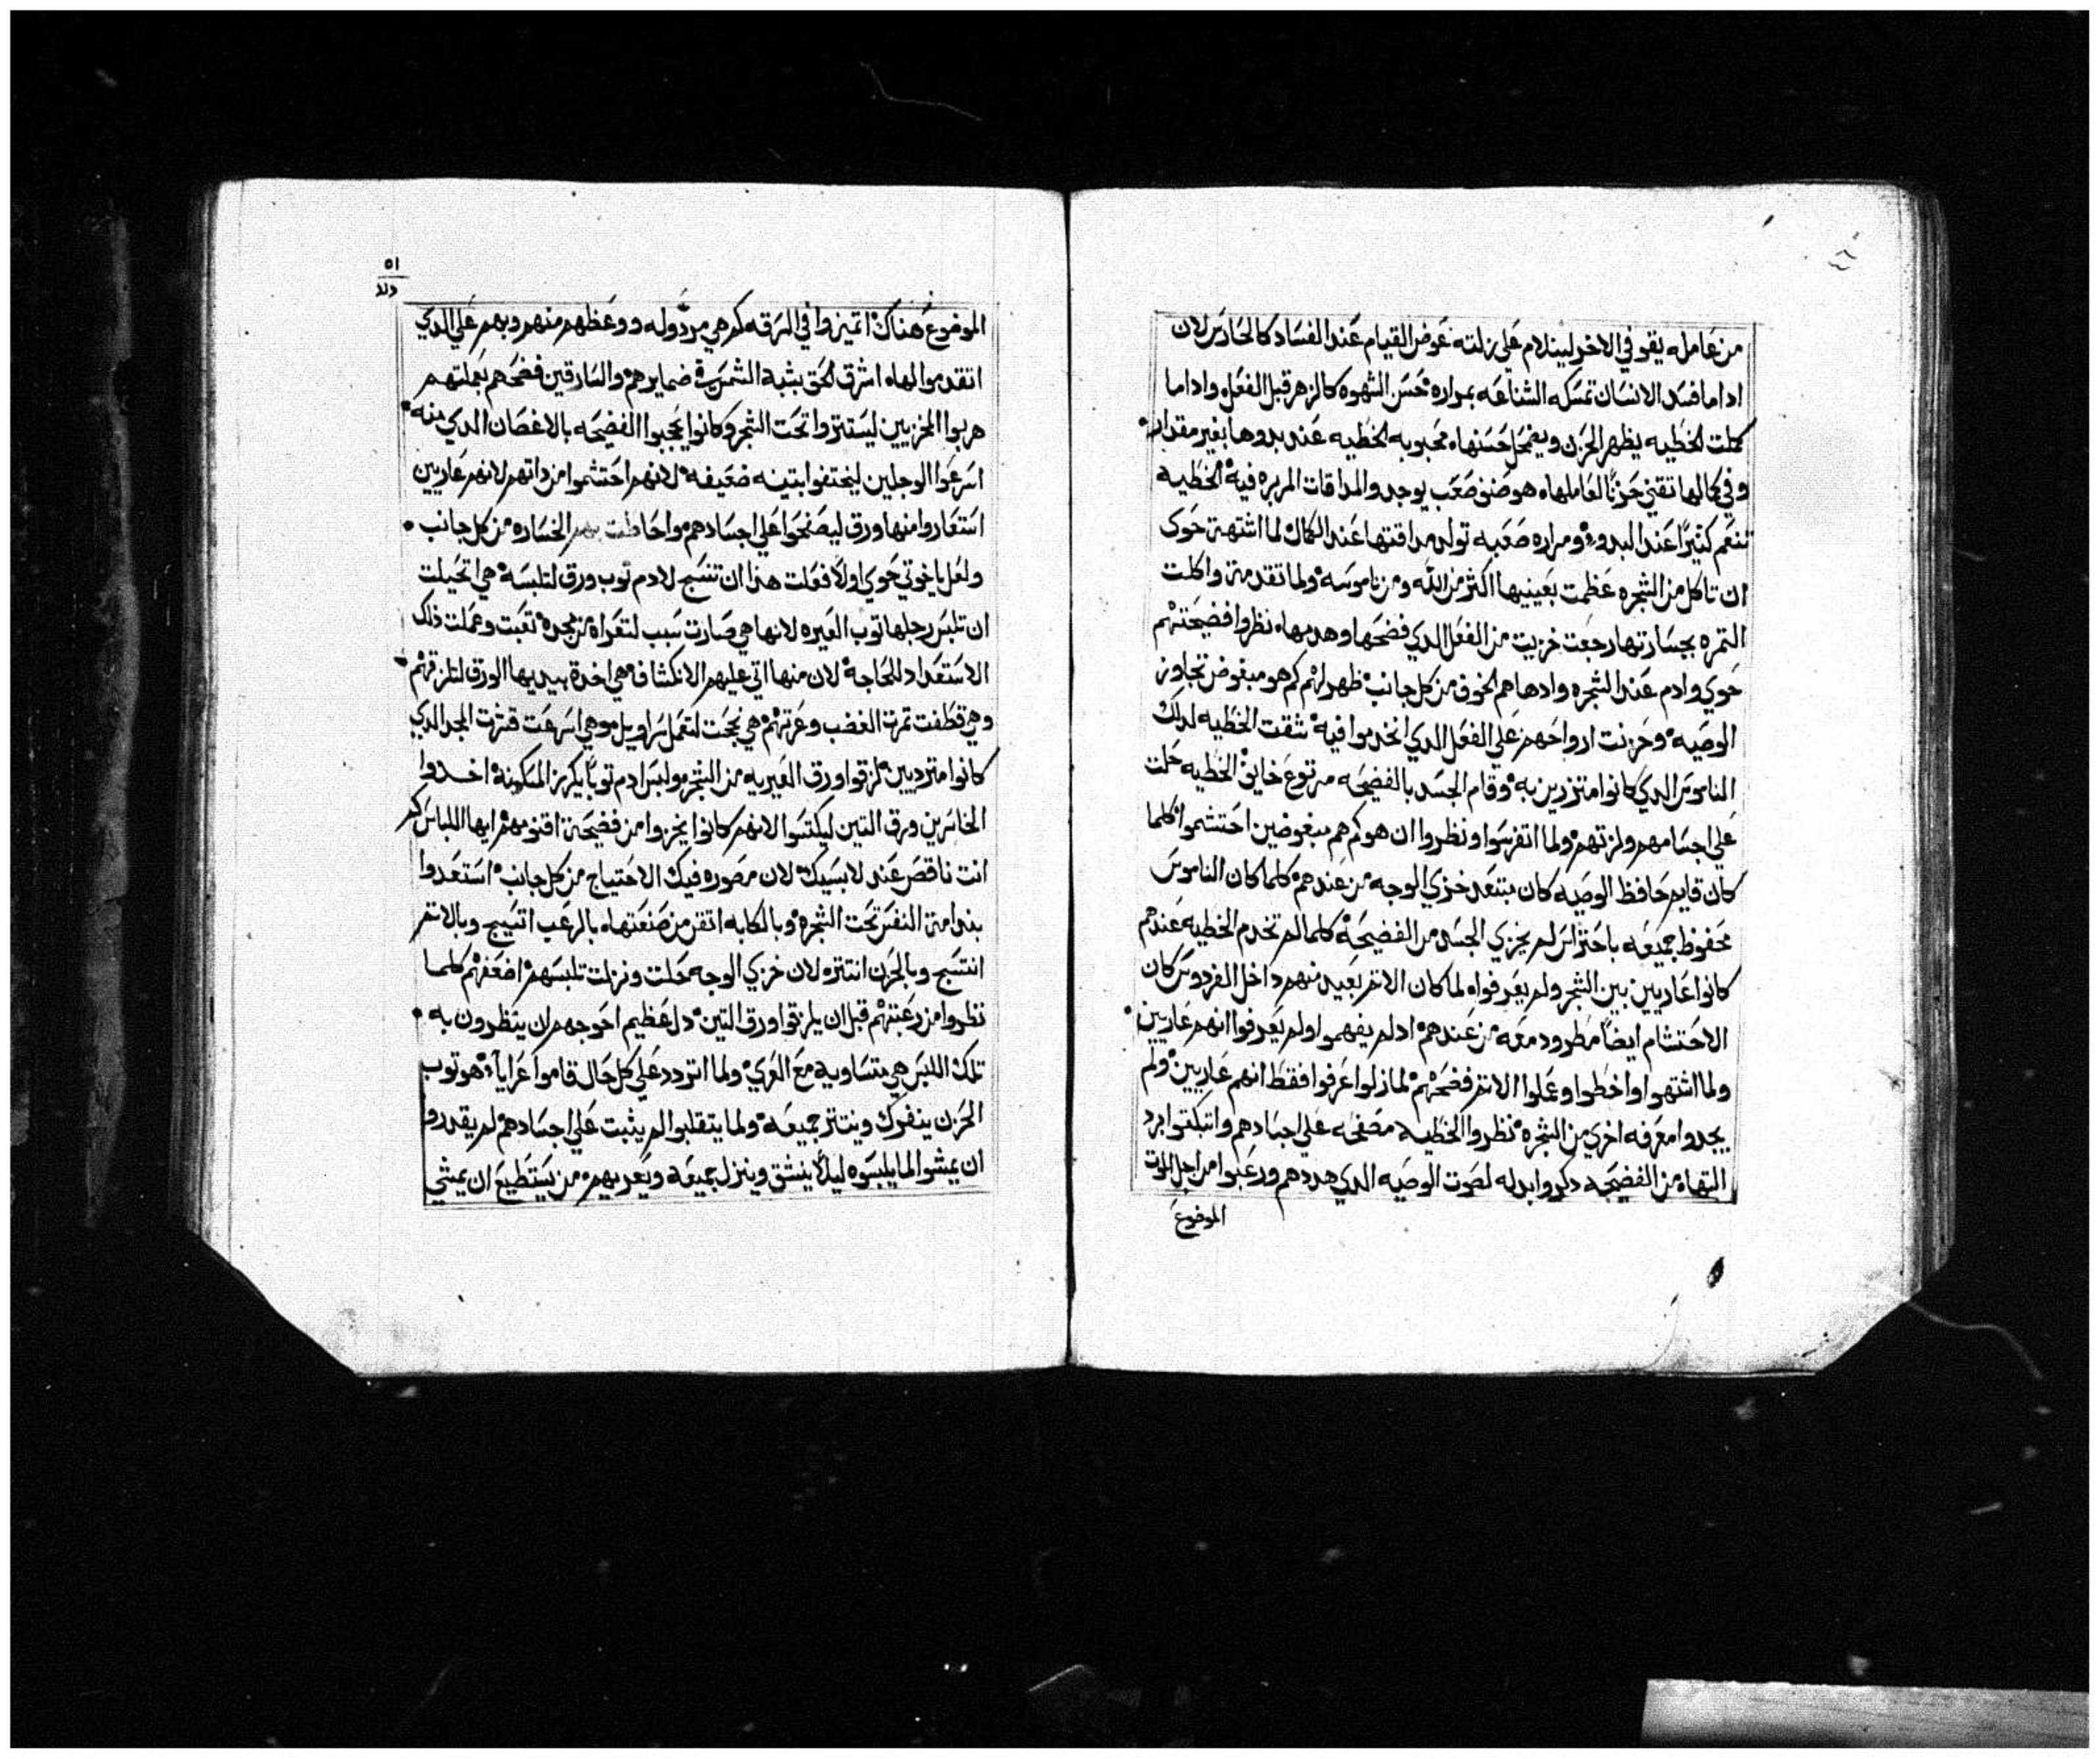 من عامله يقو في الاخر ليتلام على زلته عوض القيام عند الفساد كالحارس لان
ادا ما فسد الانسان تمسكه الشناعه بمراره حسن الشهوه كالزهر قبل الفعل وادا ما
كملت الخطيه يظهر الحزن ويضمحل حسنها محبوبه الخطيه عند بدوها بغير مقدار
وفي كمالها تقني حزنًا لعاملها هو ضنف صعب يوجد والمداقات المريره فيه الخطيه
تنعم كثيرًا عند البدو ومراره صعبه تولد مداقتها عند الكمال لما اشتهت حوى
ان تاكل من الشجره عظمت بعينيها اكثر من الله ومن ناموسه ولما تقدمت واكلت
التمره بجسارتها رجعت خزيت من الفعل الدي فضحها وهدمها نظروا فضيحتهم
حوي وادم عند الشجره وادهاهم الخوف من كل جانب ظهر لهم كم هو مبغوض تجاوز
الوصيه وحزنت ارواحهم علي الفعل الدي انخدموا فيه شقت الخطيه لداك
الناموس الدي كانوا متزرين به وقام الجسد بالفضيحه مرتوع خايف الخطيه حلت
علي اجسامهم ولزتهم ولما اتفرسوا ونظروا ان هو كم هم مبغوضين احتشموا كلما
كان قايم حافظ الوصيه كان مبتعد خزي الوجه من عندهم كلما كان الناموس
محفوظ جميعه باحتراس لم يخزي الجسد من الفضيحه كلما لم تخدم الخطيه عندهم
كانوا عاريين بين الشجر ولم يعرفوا لما كان الاتم بعيد منهم داخل الفردوس كان
الاحتشام ايضًا مطرود معه من عندهم ادلم يفهموا ولم يعرفوا انهم عاريين
ولما اشتهوا واخطوا وعملوا الاتم فضحهم لما زلوا عرفوا فقط انهم عاريين ولم
يجدوا معرفه اخري من الشجره نظروا الخطيه مصفحه علي اجسادهم واتبكتوا برد
التهاه من الفضيحه دكروا بدله لصوت الوصيه الدي هددهم ورعبوا من اجل الموت
الموضوع
٥١
الموضوع هناك اتميزوا في السرقه كم هي مردوله ووعظهم منهم وبهم علي الدي
اتقدموا لها اشرق الحق بشبه الشمس في ضمايرهم والسارقين فضحهم بعملتهم
هربوا المخزيين ليستتروا تحت الشجر وكانوا يحجبوا الفضيحه بالاغصان الدي منه
اسرعوا الوجلين ليختفوا بتينه ضعيفه لانهم احتشموا من داتهم لانهم عاريين
استعاروا منها ورق ليصنحوا علي اجسادهم واحاطت بهم الخساره من كل جانب
ولعل ياخوتي حوي اولًا فعلت هدا ان تنسج لادم توب ورق لتلبسه هي اتحيلت
ان تلبس رجلها توب العيره لانها هي صارت سبب لتعراه من مجده تعبت وعملت دلك
الاستعداد للحاجه لان منها اتي عليهم الانكشاف هي اخدة بيديها الورق لتلزقهم
وهي قطفت تمرت الغضب وعرتهم هي نجحت لتعمل سراويل وهي اسرعت قشرت المجد الدي
كانوا متردبين لزقوا ورق العيريه من الشجر ولبس ادم توبًا يكرز المسكينه اخدوا
الخاسرين ورق التين ليكتسوا لانهم كانوا يخزوا من فضيحة اقنومهم ايها اللباس كم
انت ناقص عند لابسيك لان مصوره فيك الاحتياج من كل جانب استعدوا
بندامة النفس تحت الشجره وبالكابه اتقن من صنعتها بالرعب اتسيج وبالاتم
انتسج وبالحزن انتتره لان خزي الوجه حلت ونزلت تلبسهم اضعفهم كلما
نظروا من رعبتهم قبل ان يلزقوا ورق التين دل عظيم احوجهم ان ينظرون به
تلك اللبس هي متساويه مع العري ولما اتردد علي كل حال قاموا عرايا هو توب
الحزن ينفرك وينتتر جميعه ولما يتقلبوا لم يثبت علي اجسادهم لم يقدروا
ان يمشوا لما يلبسوه ليلًا ينشق وينزل جميعه ويعريهم من يستطيع ان يمشي